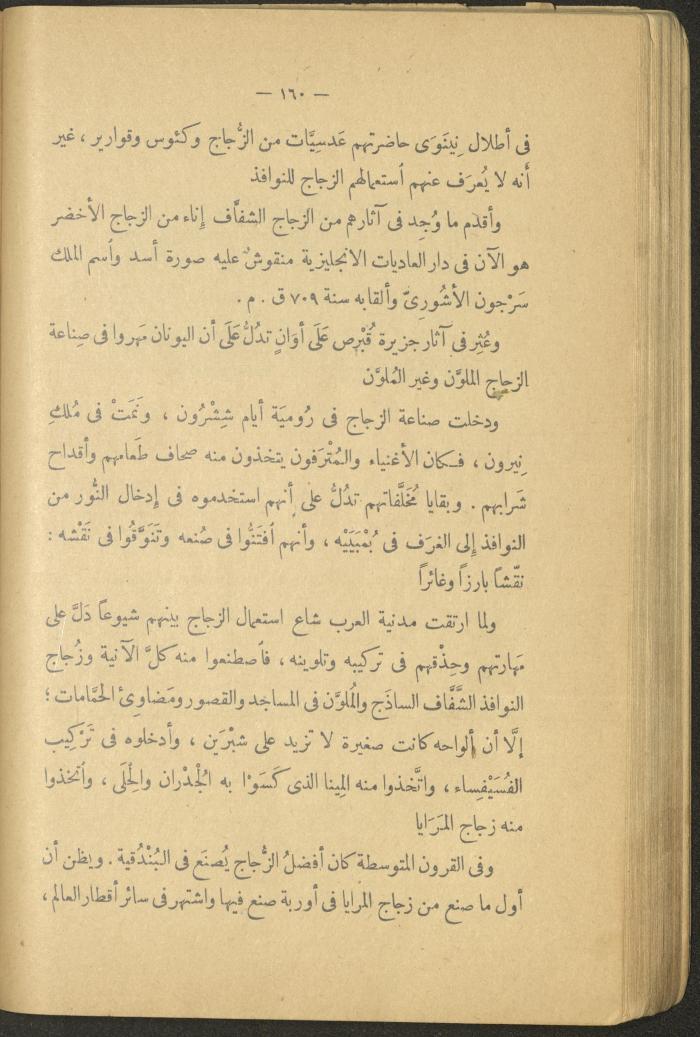 — ١٦٠ —
فى أطلال نِينَوَى حاضرتهم عَدسِيَّات من الزُّجاج وكئوس وقوارير ، غير
أنه لا يُعرَف عنهم ٱستعمالهم الزجاج للنوافذ
وأقدم ما وُجِد فى آثارهم من الزجاج الشفاف إناء من الزجاج الأخضر
هو الآن فى دار العاديات الانجليزية منقوش عليه صورة أسد وٱسم الملك
سَرْجون الأشُورىّ وألقابه سنة ٧٠٩ ق . م .
وعُثِر فى آثار جزيرة قُبْرِص عَلَى أوَانٍ تدُلُّ عَلَى أن اليونان مَهروا فى صِناعة
الزجاج الملوَّن وغير المُلوَّن
ودخلت صناعة الزجاج فى رُوميَة أيام شِشْرُون ، ونَمَتْ فى مُلكِ
نِيرون ، فكان الأغنياء والمُتْرَفون يتخذون منه صحاف طَعامهم وأقداح
شَرابهم . وبقايا مُخَلَّفاتهم تدُلُّ على أنهم استخدموه فى إدخال النُّور من
النوافذ إلى الغرَف فى بُمْبَيَيْه ، وأنهم ٱفتَنُّوا فى صُنعه وتَنَوَّقُوا فى نَقْشه :
نقْشاً بارزاً وغائراً
ولما ارتقت مدنية العرب شاع استعمال الزجاج بينهم شيوعاً دَلَّ على
مَهارتهم وحِذْقهم فى تركيبه وتلوينه ، فٱصطنعوا منه كلَّ الآنية وزُجاج
النوافذ الشَّفَّاف الساذَج والمُلوَّن فى المساجد والقصور ومَضاوِئ الحَمَّامات ؛
إلَّا أن ألواحه كانت صغيرة لا تزيد على شبْرَين ، وأدخلوه فى تَرْكِيب
الفُسَيْفِساء ، واتَّخذوا منه المِينا الذى كَسَوْا به الجُدْران والحِلَى ، وٱتخذوا
منه زجاج المَرَايا
وفى القرون المتوسطة كان أفضلُ الزُّجاج يُصنَع فى البُنْدُقية . ويظن أن
أول ما صنع من زجاج المرايا فى أوربة صنع فيها واشتهر فى سائر أقطار العالم ،